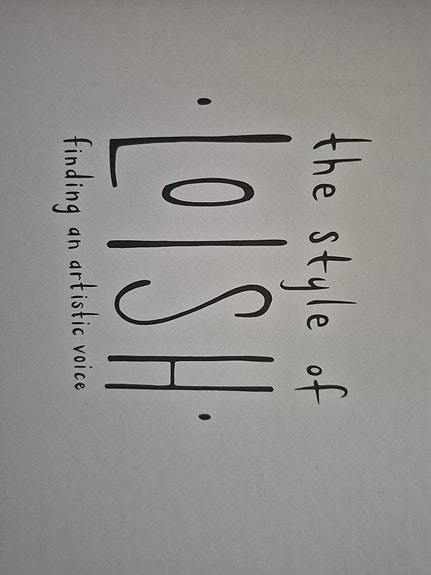 the style of
· LOISH ·
finding an artistic voice